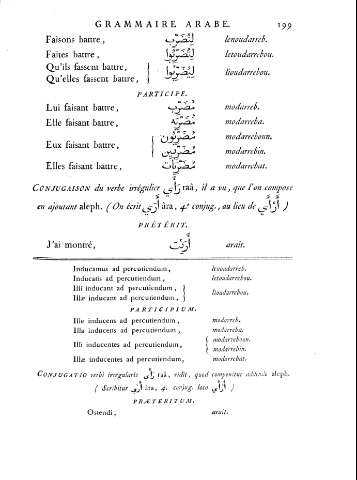 GRAMMAIRE ARABE. 199
Faisons battre, لِنُضَرِّبْ lenoudarreb.
Faites battre, لِتُضَرِّبُوا letoudarrebou.
Qu'ils fassent battre, لِيُضَرِّبُوا lioudarrebou.
Qu'elles fassent battre,
PARTICIPE.
Lui faisant battre, مُضَرِّب modarreb.
Elle faisant battre, مُضَرِّبَة modarreba.
Eux faisant battre, مُضَرِّبُون modarreboun.
مُضَرِّبِين modarrebin.
Elles faisant battre, مُضَرِّبَات modarrebat.
CONJUGAISON du verbe irrégulier رَأَى raà, il a vu, que l'on compose
en ajoutant aleph. (On écrit أَرَى àra, 4e conjug., au lieu de أَرْأَى)
PRÉTÉRIT.
J'ai montré, أَرَيْت arait.
Inducamus ad percutiendum, lenoudarreb.
Inducatis ad percutiendum, letoudarrebou.
Illi inducant ad percutiendum, lioudarrebou.
Illæ inducant ad percutiendum,
PARTICIPIUM.
Ille inducens ad percutiendum, modarreb.
Illa inducens ad percutiendum, modarreba.
Illi inducentes ad percutiendum, modarreboun.
modarrebin.
Illæ inducentes ad percutiendum, modarrebat.
CONJUGATIO verbi irregularis رَأَى raà, vidit, quod componitur addendo aleph.
(Scribitur أَرَى àra, 4. conjug. loco أَرْأَى)
PRÆTERITUM.
Ostendi, arait.